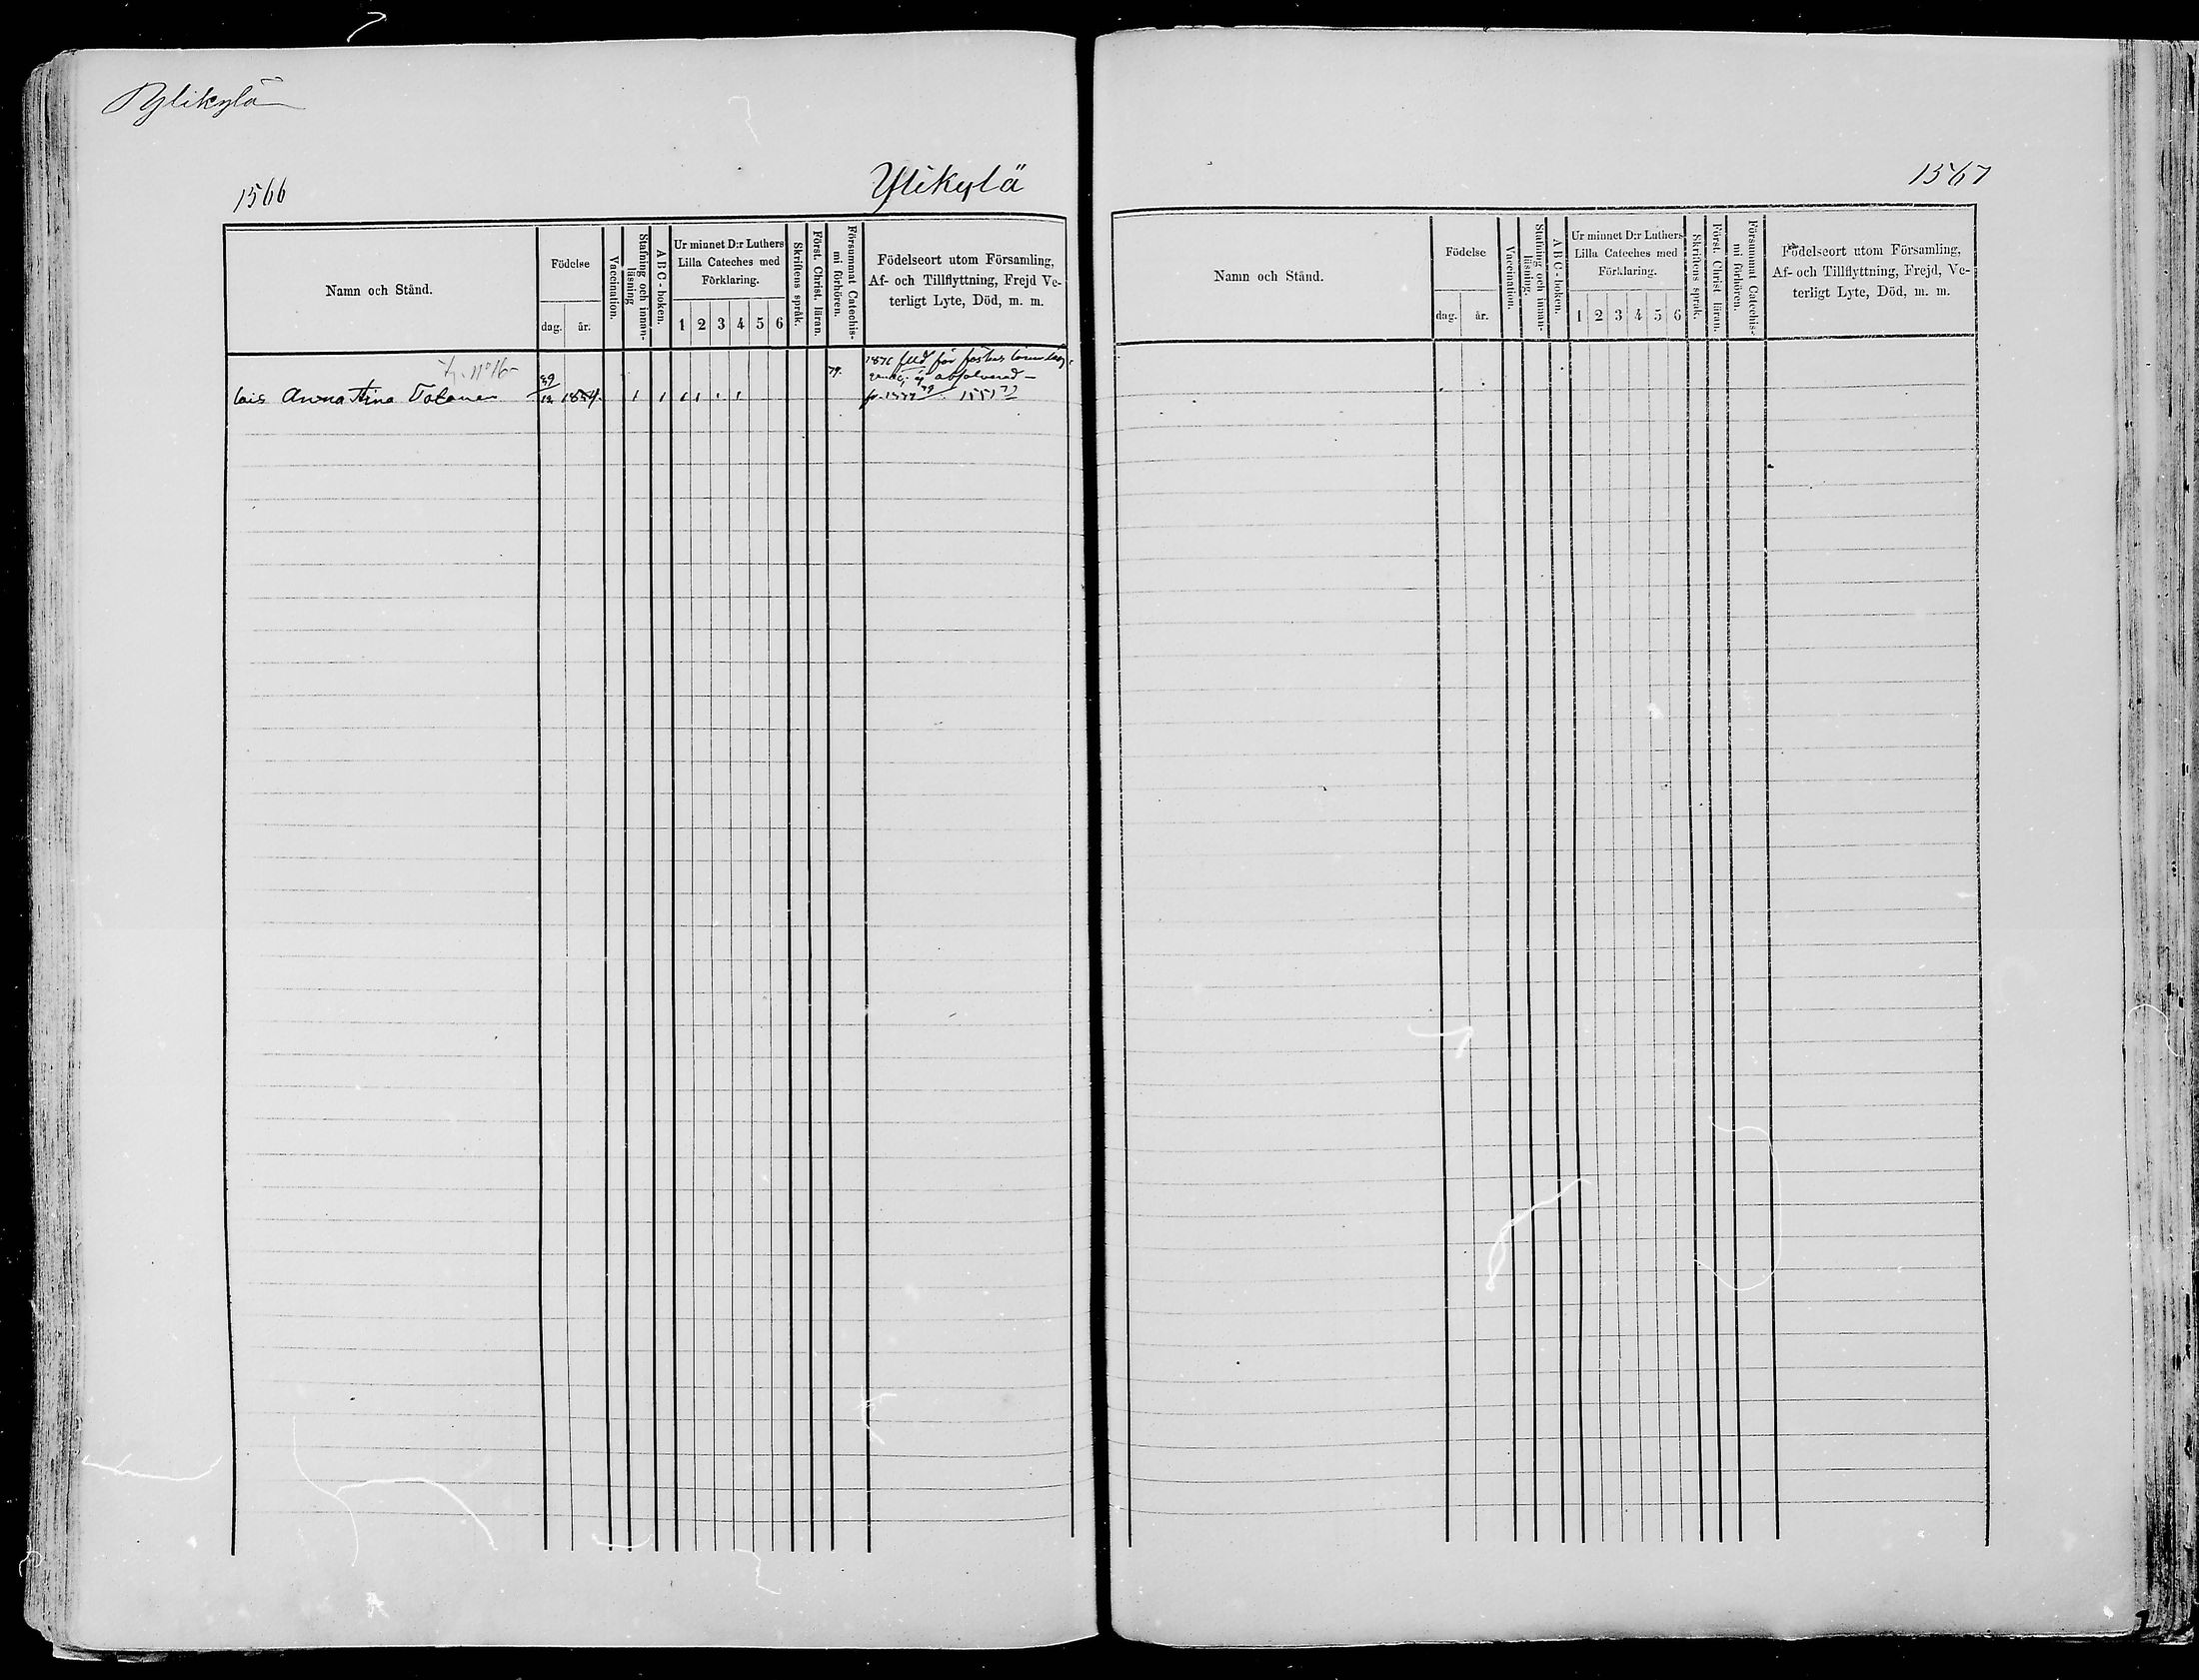 Ylikylä
1566
Ylikylä
Namn och Stånd.
Födelse
dag.
år.
Vaccination.
Stafning och innan-
läsning
ABC-boken.
Ur minnet D:r Luthers
Lilla Cateches med
Förklaring.
1 2 3 4 5 6
Skriftens språk.
Först. Christ. läran.
Försummat Catechis-
mi förhören.
Födelseort utom Församling,
Af- och Tillflyttning, Frejd Ve-
terligt Lyte, Död, m. m.
Anna Stina
12 1854
79.
1876
absolverad
1567
Namn och Stånd.
Födelse
dag.
år.
Vaccination.
Stafning och innan-
läsning.
ABC-boken.
Ur minnet D:r Luthers
Lilla Cateches med
Förklaring.
1 2 3 4 5 6
Skriftens språk.
Först. Christ läran.
Försummat Catechis-
mi förhören.
Födelseort utom Församling,
Af- och Tillflyttning, Frejd, Ve-
terligt Lyte, Död, m. m.